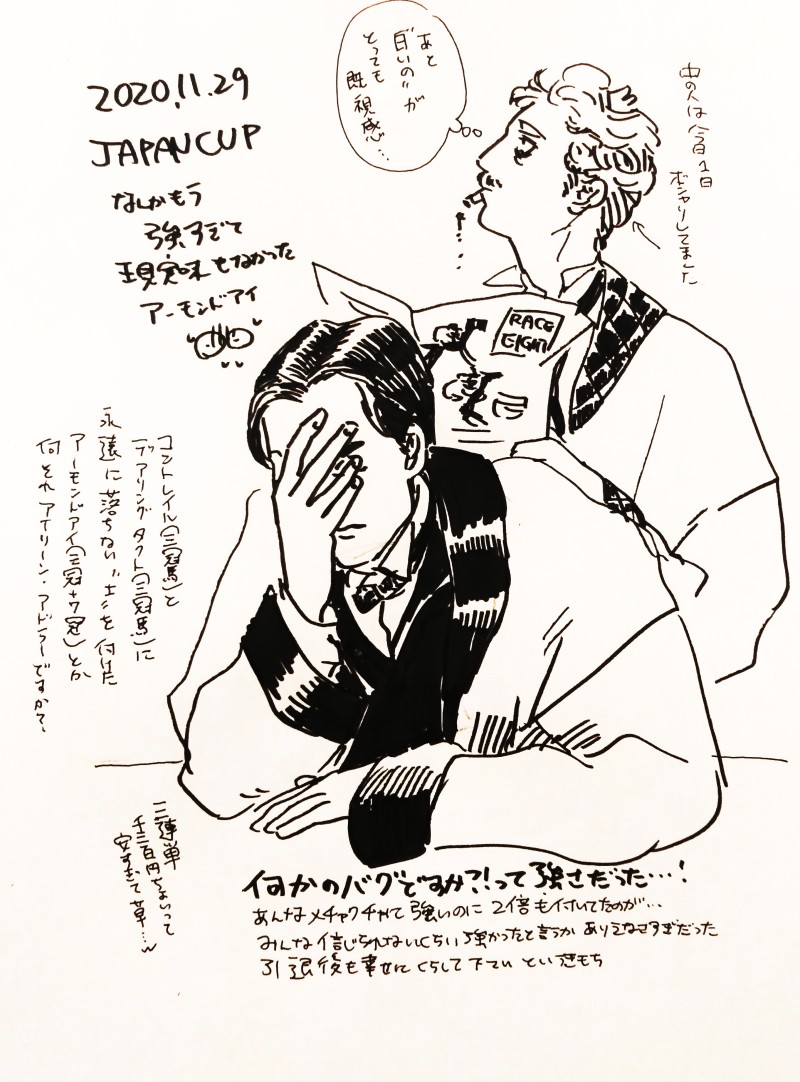 2020.11.29
JAPAN CUP
なんかもう
強すぎて
現実味もなかった
アーモンドアイ
あと
"白いの"が
とっても
既視感…
中の人は今日1日
ボンヤリしてました
RACE
EIGHT
コントレイル(三冠馬)と
デアリングタクト(三冠馬)に
永遠に落ちない"土"を付けた
アーモンドアイ(三冠+7冠)とか
何それアイリーン・アドラーですか?
三連単
千三百円ちょいって
安すぎて草…w
何かのバグですか?!って強さだった…!
あんなメチャクチャて強いのに2倍も付いてたのが…
みんな信じられないくらい強かったと言うかありえなさすぎだった
引退後も幸せにくらして下てい というきもち